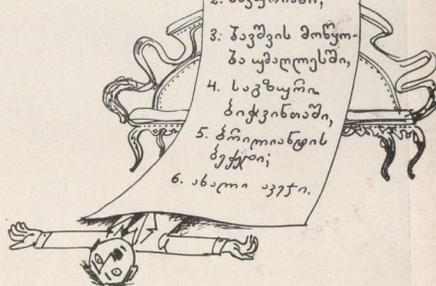 3. ბავშვის მოწყო-
ბა უმაღლესში,
4. საგზური
ბიჭვინთაში,
5. ბრილიანტის
ბეჭედი;
6. ახალი ავეჯი.